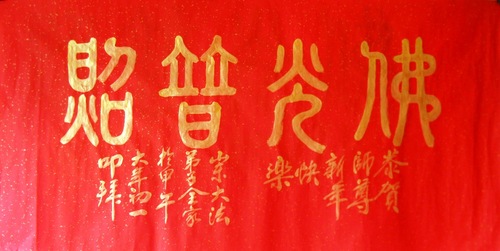 佛光普照
恭賀
師尊
新年
快
樂
崇大法
弟子全家
於甲午
大年初一
叩拜